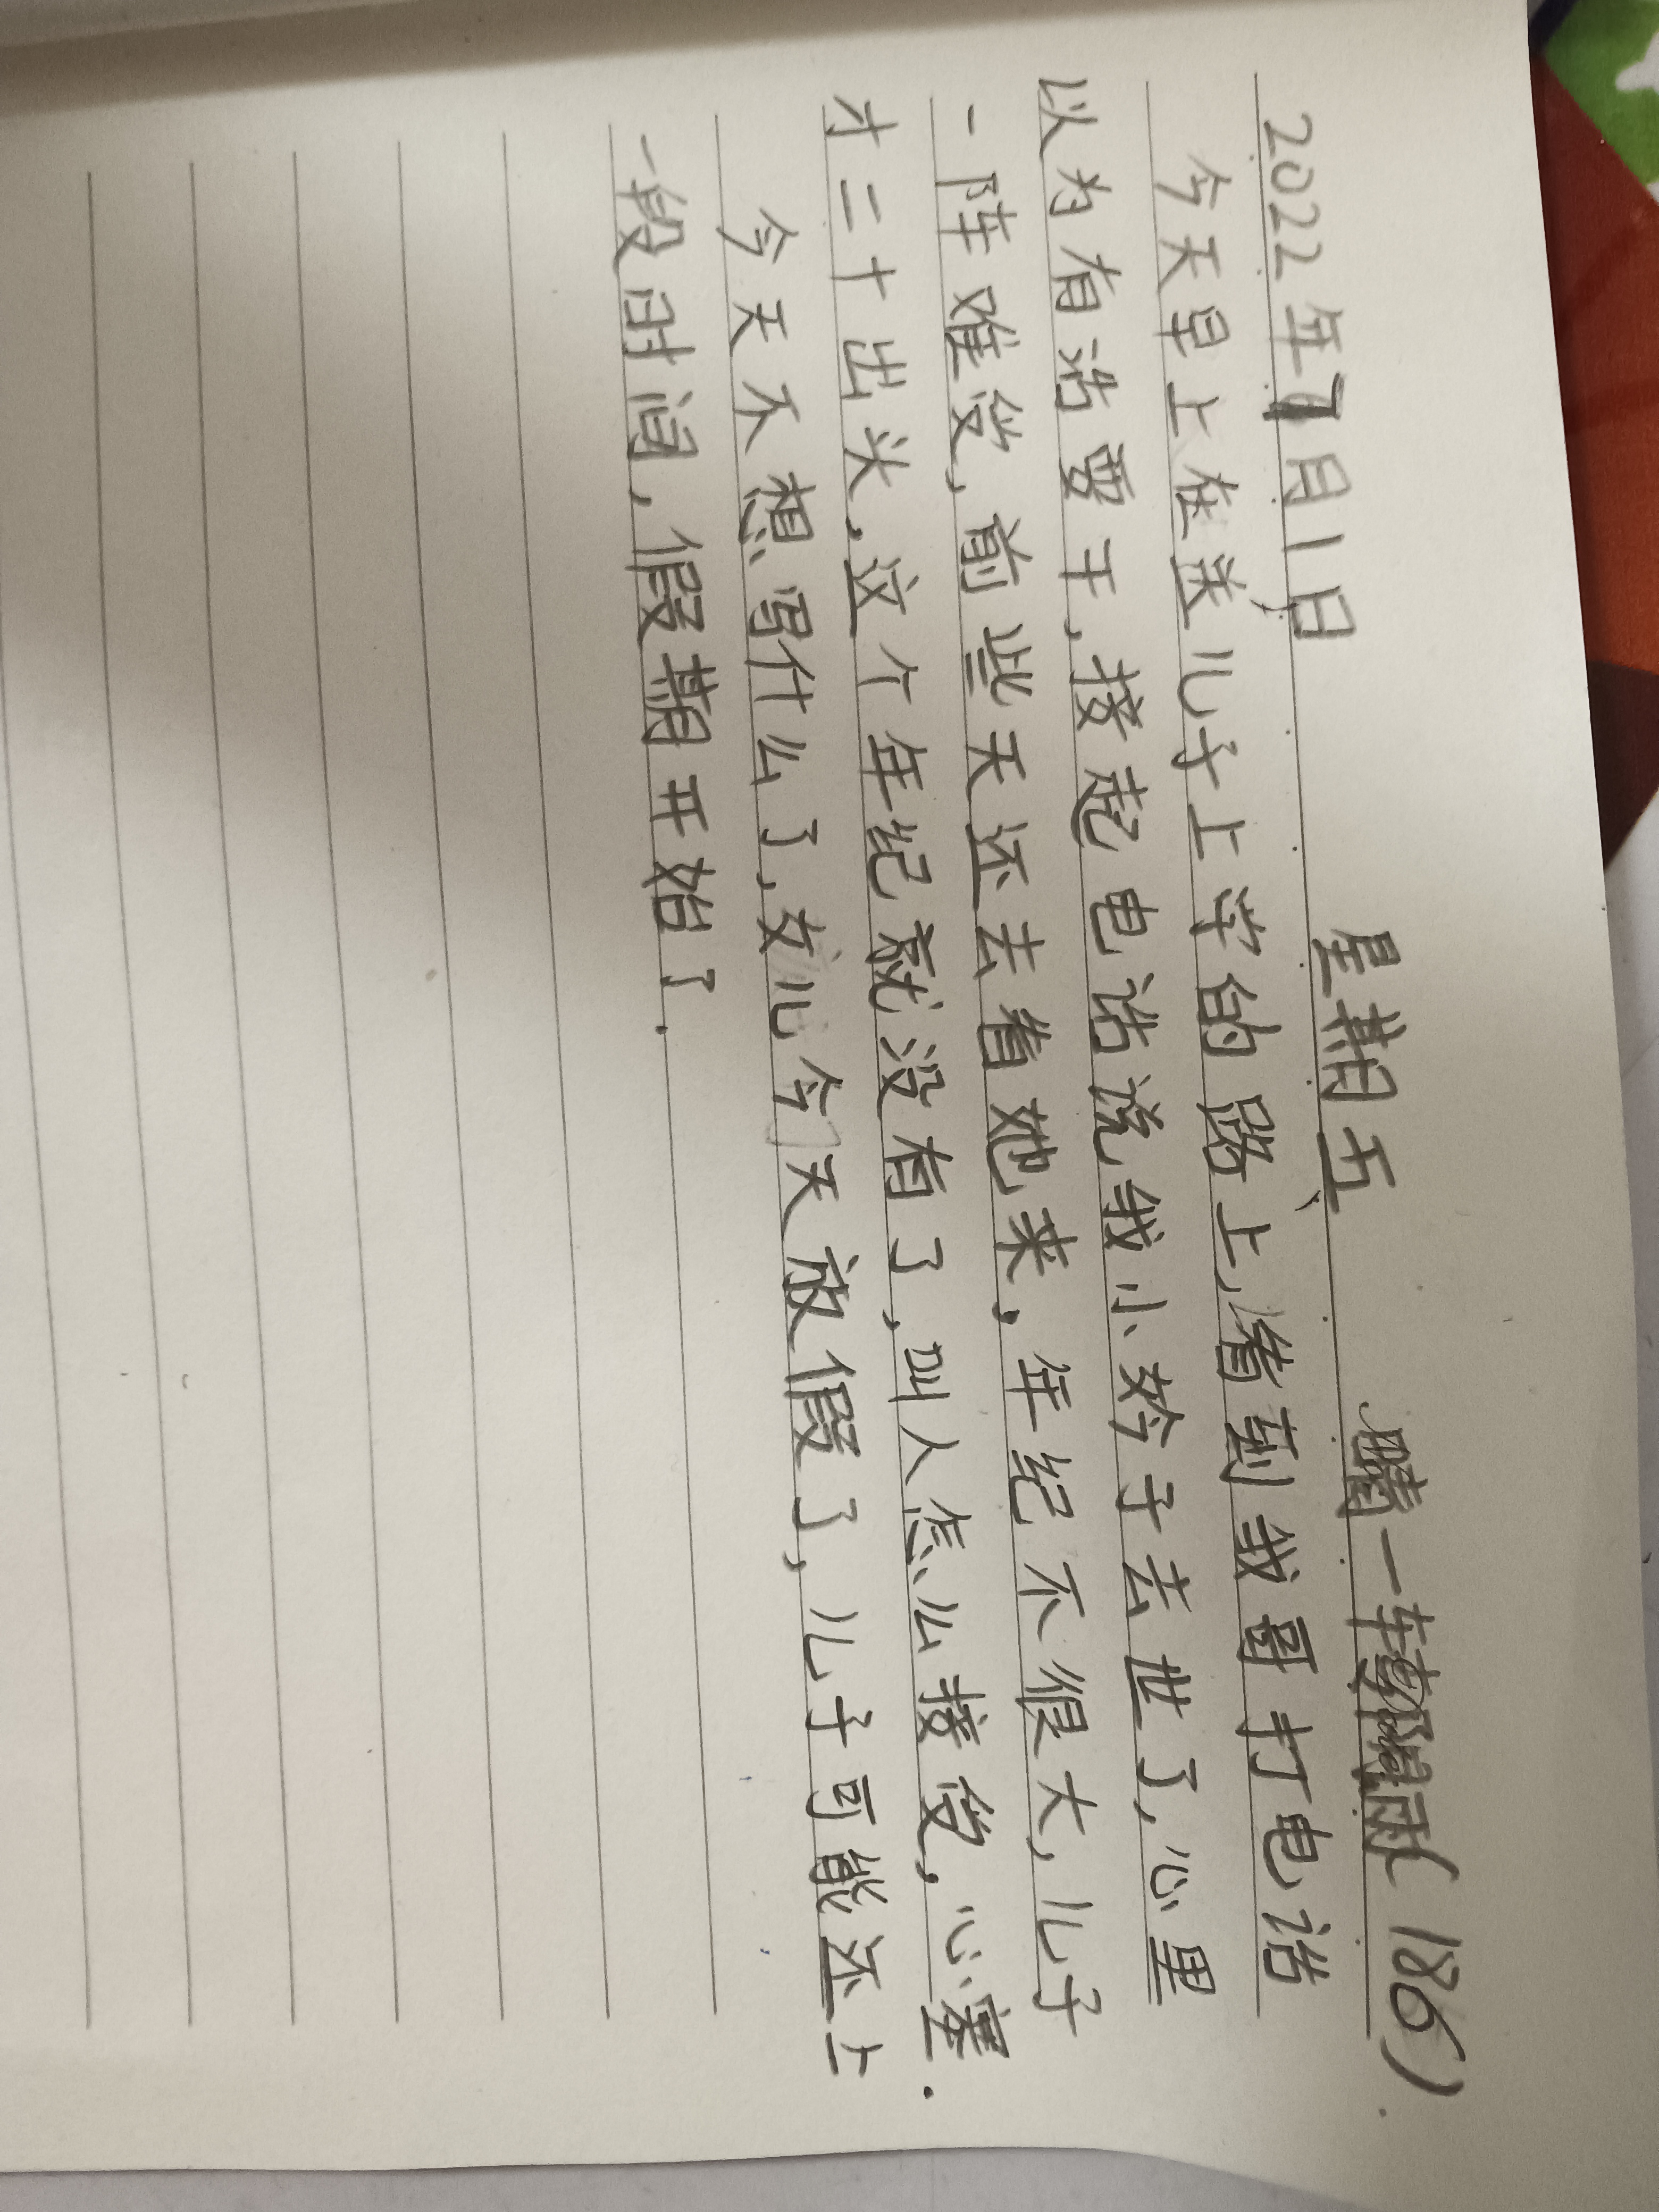 2022年7月1日 星期五 晴一转雨(186).
今天早上在送儿子上学的路上,看到我哥打电话
以为有话要干,接起电话说我小妗子去世了,心里
一阵难受,前些天还去看她来,年纪不很大,儿子
才二十出头,这个年纪就没有了,叫人怎么接受,心塞.
今天不想写什么了,女儿今天放假了,儿子可能还上
一段时间,假期开始了.